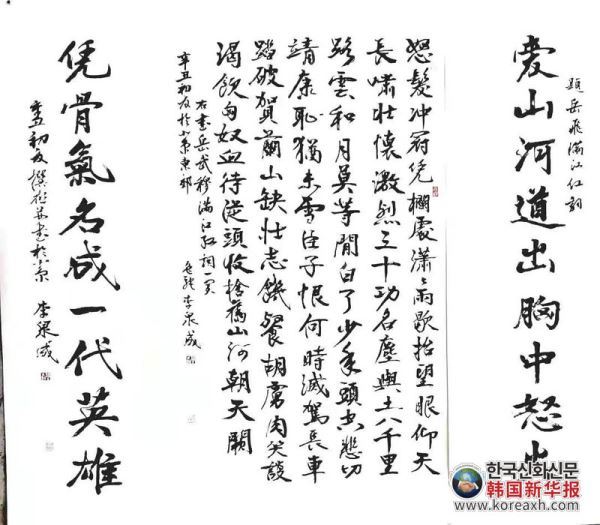 題岳飛滿江红詞
愛山河道出胸中怒火
怒髮冲冠凭欄處瀟々雨歇抬望眼仰天
長嘯壯懷激烈三十功名塵與土八千里
路雲和月莫等閒白了少年頭空悲切
靖康恥猶未雪臣子恨何時滅駕長車
踏破賀蘭山缺壯志饑餐胡虜肉笑談
渴飲匈奴血待從頭收拾舊山河朝天闕
右書岳武穆滿江红詞一闋
辛丑初夏於京東郊 李泉成
凭骨氣名成一代英雄
辛丑初夏撰联并書於京 李泉成
한국신화신문
韩国新华报
www.koreaxh.com